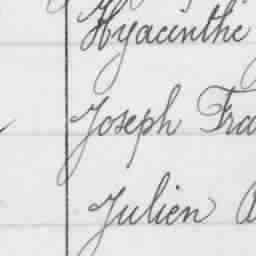 Hyacinthe
Joseph Fra
Julien